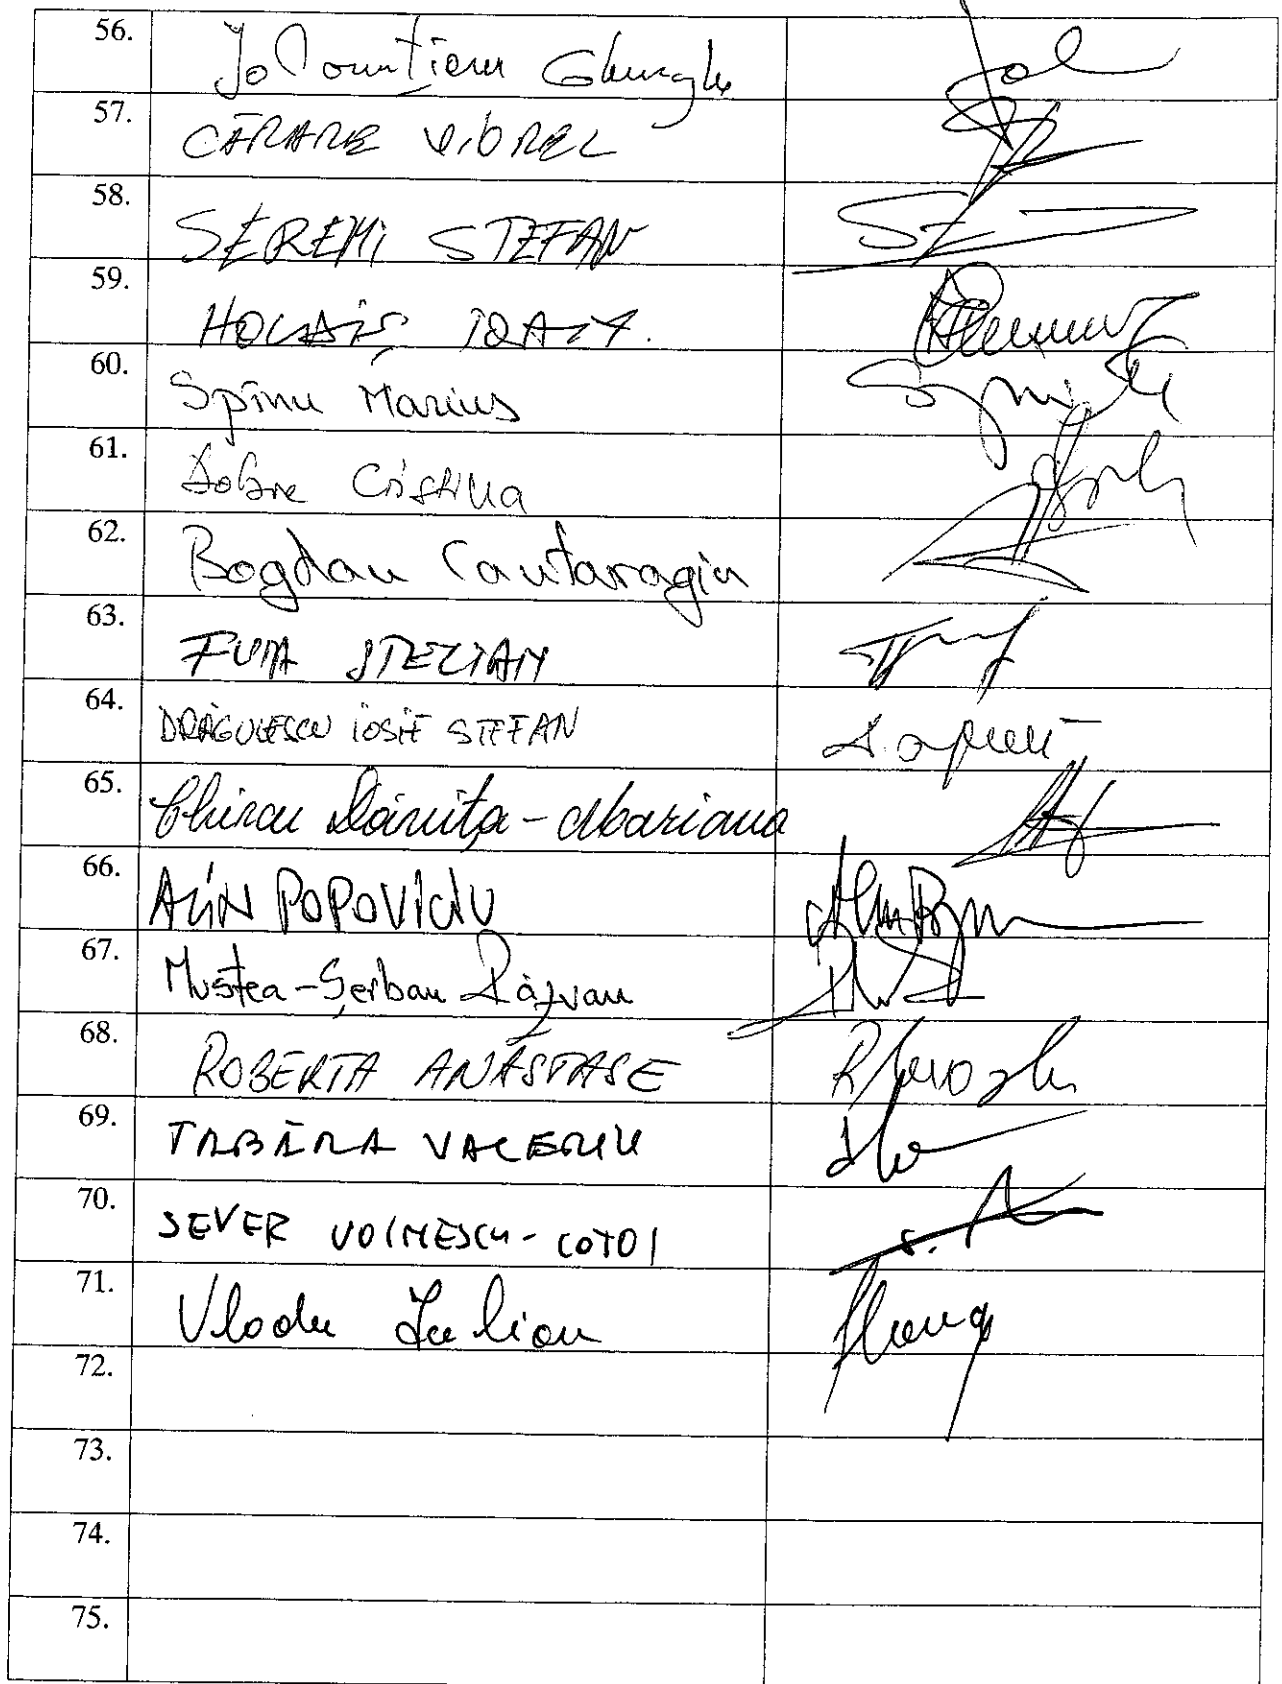 56. Ialomițianu Gheorghe
57. CĂRARE VIOREL
58. SEREMI STEFAN
59. HOLDIȘ IOAN.
60. Spînu Marius
61. Dobre Cristina
62. Bogdan Cantaragiu
63. FUIA STELIAN
64. DRĂGULESCU IOSIF STEFAN
65. Chircu Doinița-Mariana
66. ALIN POPOVICIU
67. Mustea-Șerban Răzvan
68. ROBERTA ANASTASE
69. TABĂRĂ VALERIU
70. SEVER VOINESCU-COTOI
71. Vladu Iulian
72.
73.
74.
75.